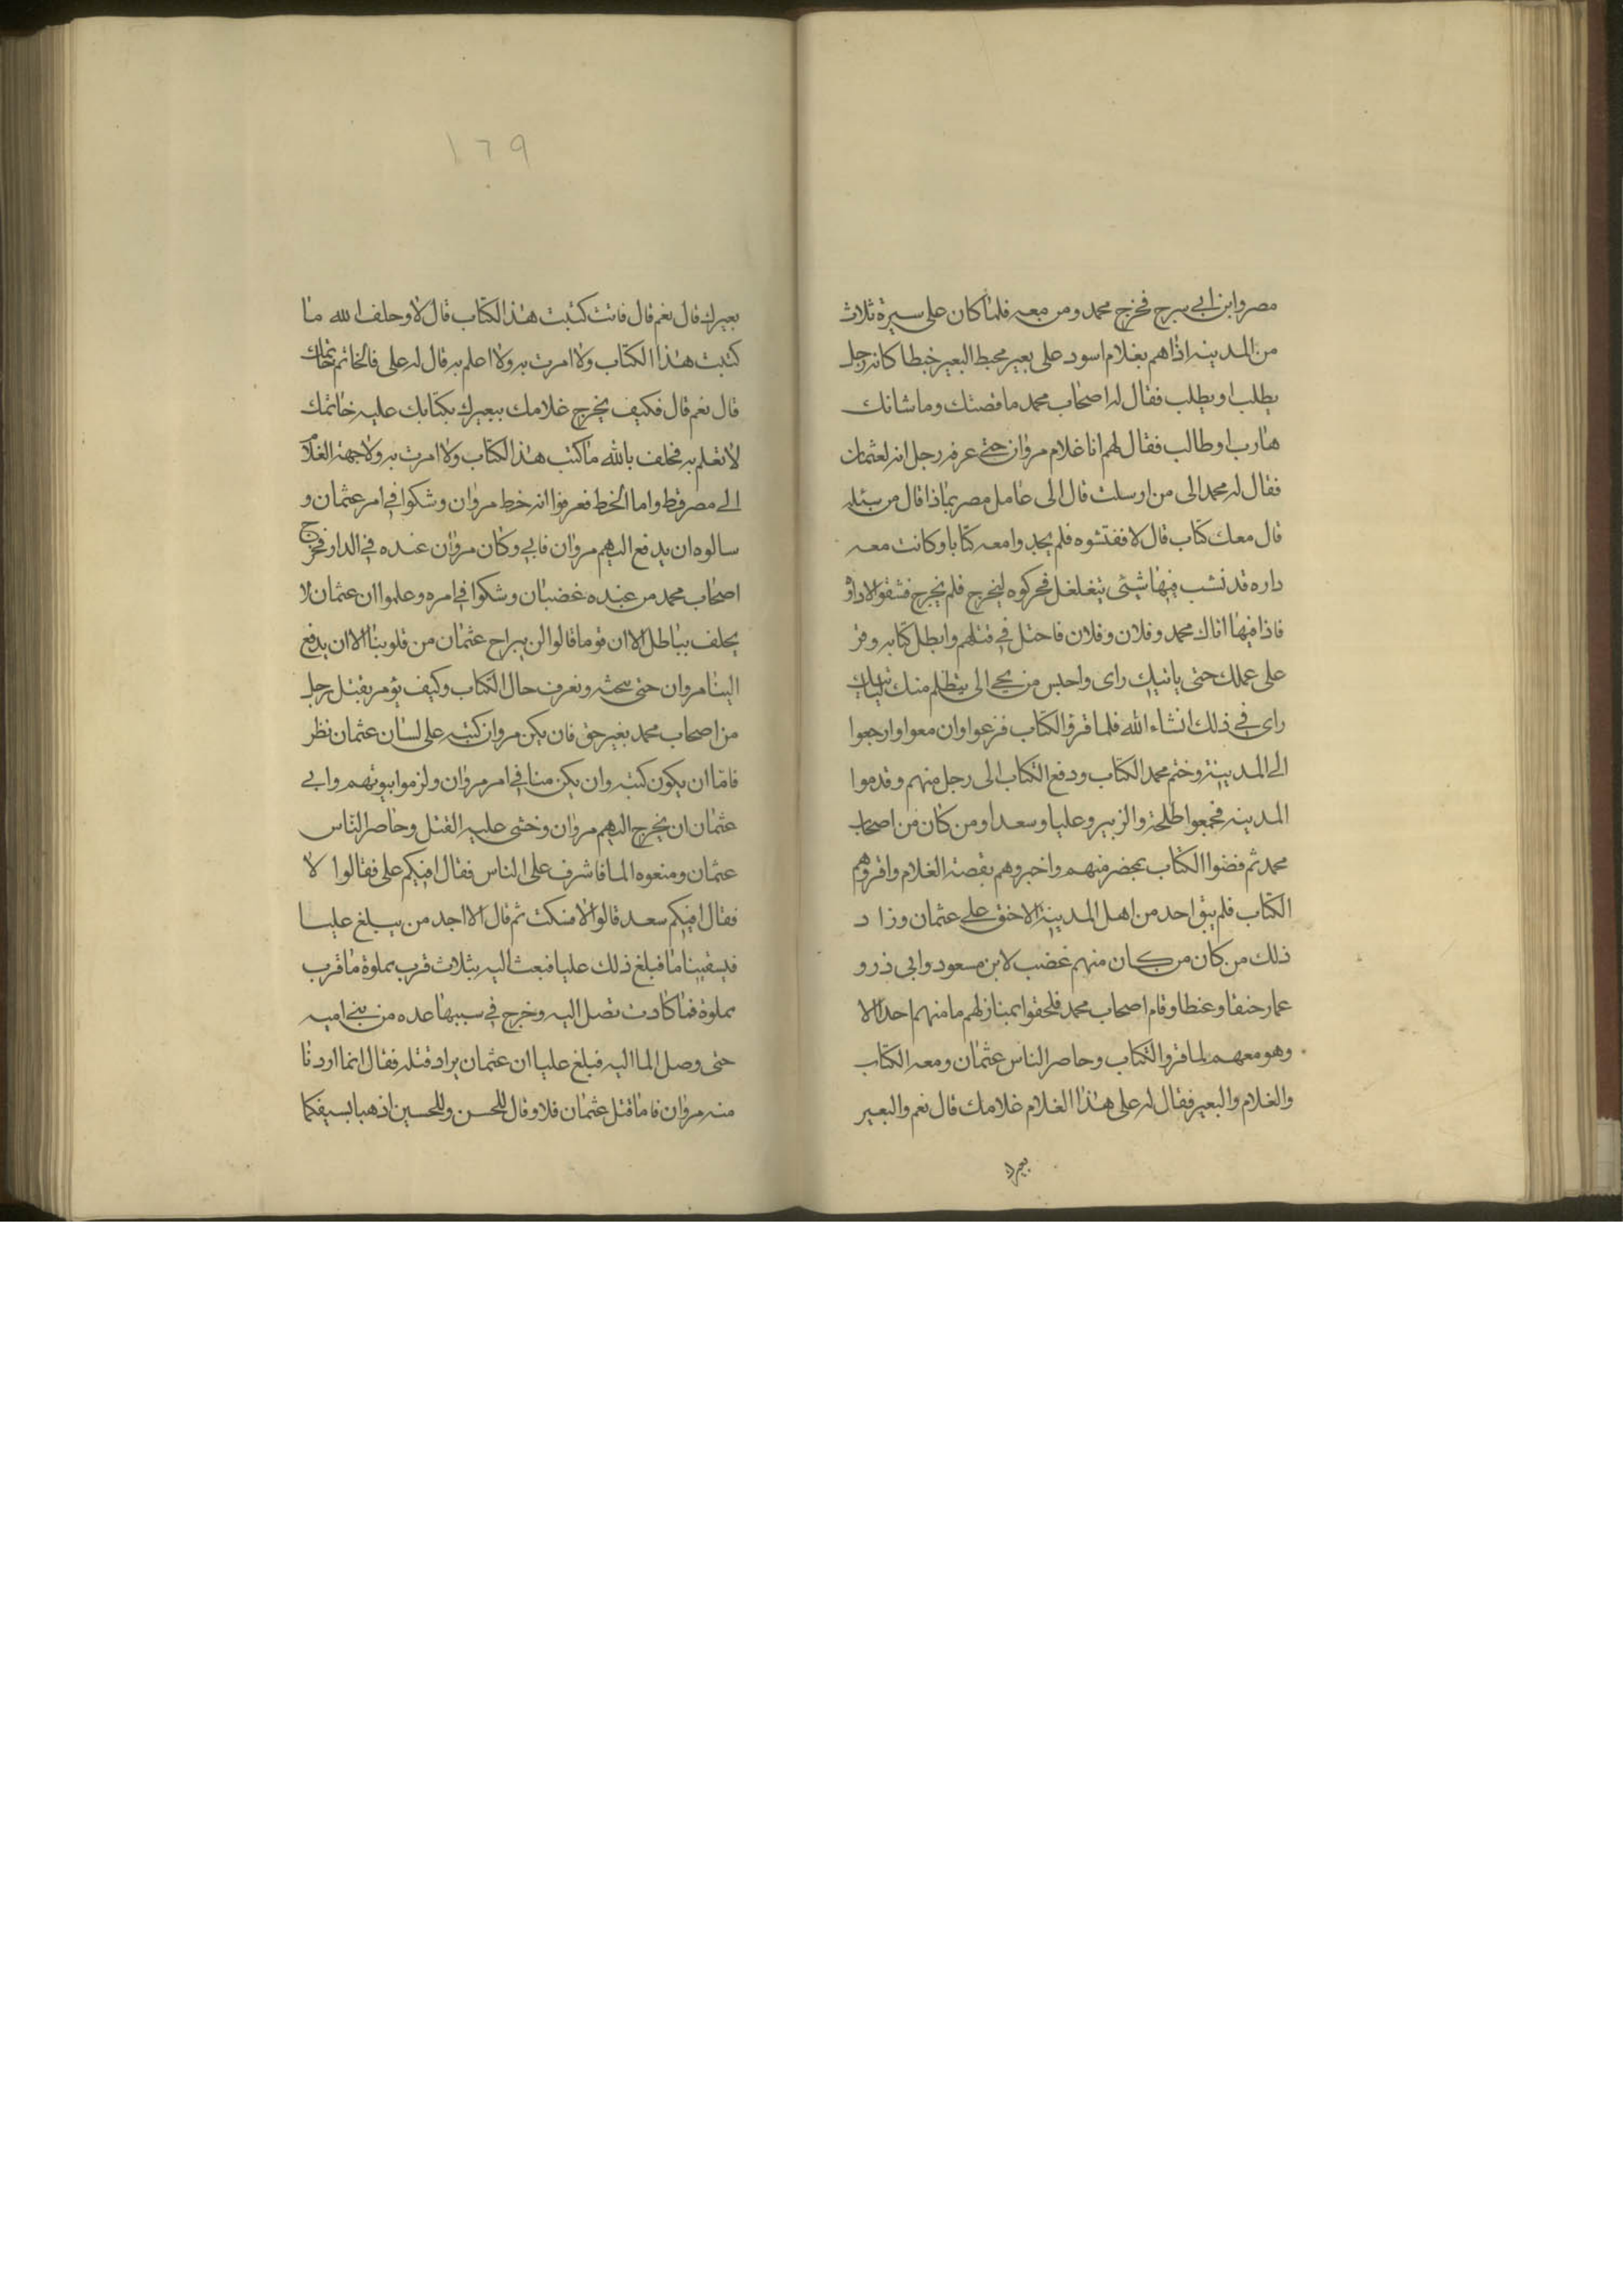 مصر وابن ابي سرح فخرج محمد ومن معه فلما كان على سيرة ثلاث
من المدينه اذا هم بغلام اسود على بعير يخبط البعير خبطا كانه رجل
يطلب او يطلب فقال له اصحاب محمد ما قصتك وما شانك
هارب او طالب فقال لهم انا غلام مروان حتى عرفه رجل انه لعثمان
فقال له محمد الى من ارسلت قال الى عامل مصر بماذا قال
قال معك كتاب قال لا ففتشوه فلم يجدوا معه كتابا وكانت معه
داره قد نشب فيها شيئ يتغلغل فحركوه ليخرج فلم يخرج فشقوا
فاذا فيها اتاك محمد وفلان وفلان فاحتل في قتلهم وابطل كتابه وقر
على عملك حتى ياتيك راى واحبس من يجى الى يتظلم منك لياتيك
راى في ذلك انشاء الله فلما قرؤ الكتاب فزعوا وان معوا وارجعوا
الى المدينة وختم محمد الكتاب ودفع الكتاب الى رجل منهم وقدموا
المدينه فجمعوا طلحة والزبير وعليا وسعدا ومن كان من اصحاب
محمد ثم فضوا الكتاب بمحضر منهم واخبروهم بقصة الغلام واقروهم
الكتاب فلم يبق احد من اهل المدينة الا حنق على عثمان وزاد
ذلك من كان من كان منهم غضب لابن مسعود وابى ذر و
عمار حنقا وغيظا وقام اصحاب محمد فلحقوا بمنازلهم ما منهم احد الا
وهو معهم لما قروا الكتاب وحاصر الناس عثمان ومعه الكتاب
والغلام والبعير فقال له على هذا الغلام غلامك قال نعم والبعير
بعيرك
١٦٩
بعيرك قال نعم قال فانت كتبت هذا الكتاب قال لا وحلف الله ما
كتبت هذا الكتاب ولا امرت به ولا اعلم به قال له على فالخاتم خاتمك
قال نعم قال فكيف يخرج غلامك ببعيرك بكتابك عليه خاتمك
لا تعلم به فحلف بالله ما كتب هذا الكتاب ولا امرت به ولا جهة الغلام
الى مصر قط واما الخط فعرفوا انه خط مروان وشكوا في امر عثمان و
سالوه ان يدفع اليهم مروان فابي وكان مروان عنده في الدار فخرج
اصحاب محمد من عنده غضبان وشكوا في امره وعلموا ان عثمان لا
يحلف بباطل الا ان قوما قالوا لن يبراح عثمان من قلوبنا الا ان يدفع
الينا مروان حتى نبحثه ونعرف حال الكتاب وكيف يؤمر بقتل رجل
من اصحاب محمد بغير حق فان يكن مروان كتبه على لسان عثمان نظر
فاما ان يكون كتبه وان يكن منا في امر مروان ولزموا بيوتهم وابي
عثمان ان يخرج اليهم مروان وخشى عليه القتل وحاصر الناس
عثمان ومنعوه الما فاشرف على الناس فقال افيكم على فقالوا لا
فقال افيكم سعد قالوا لا فسكت ثم قال الا احد من يبلغ عليا
فيسقينا ما فبلغ ذلك عليا فبعث اليه بثلاث قرب مملوة ما قرب
مملوة فما كادت تصل اليه وخرج في سببها عده من بنى اميه
حتى وصل الما اليه فبلغ عليا ان عثمان يراد قتله فقال انما اردنا
منه مروان فاما قتل عثمان فلا وقال للحسن وللحسين اذهبا بسيفكا